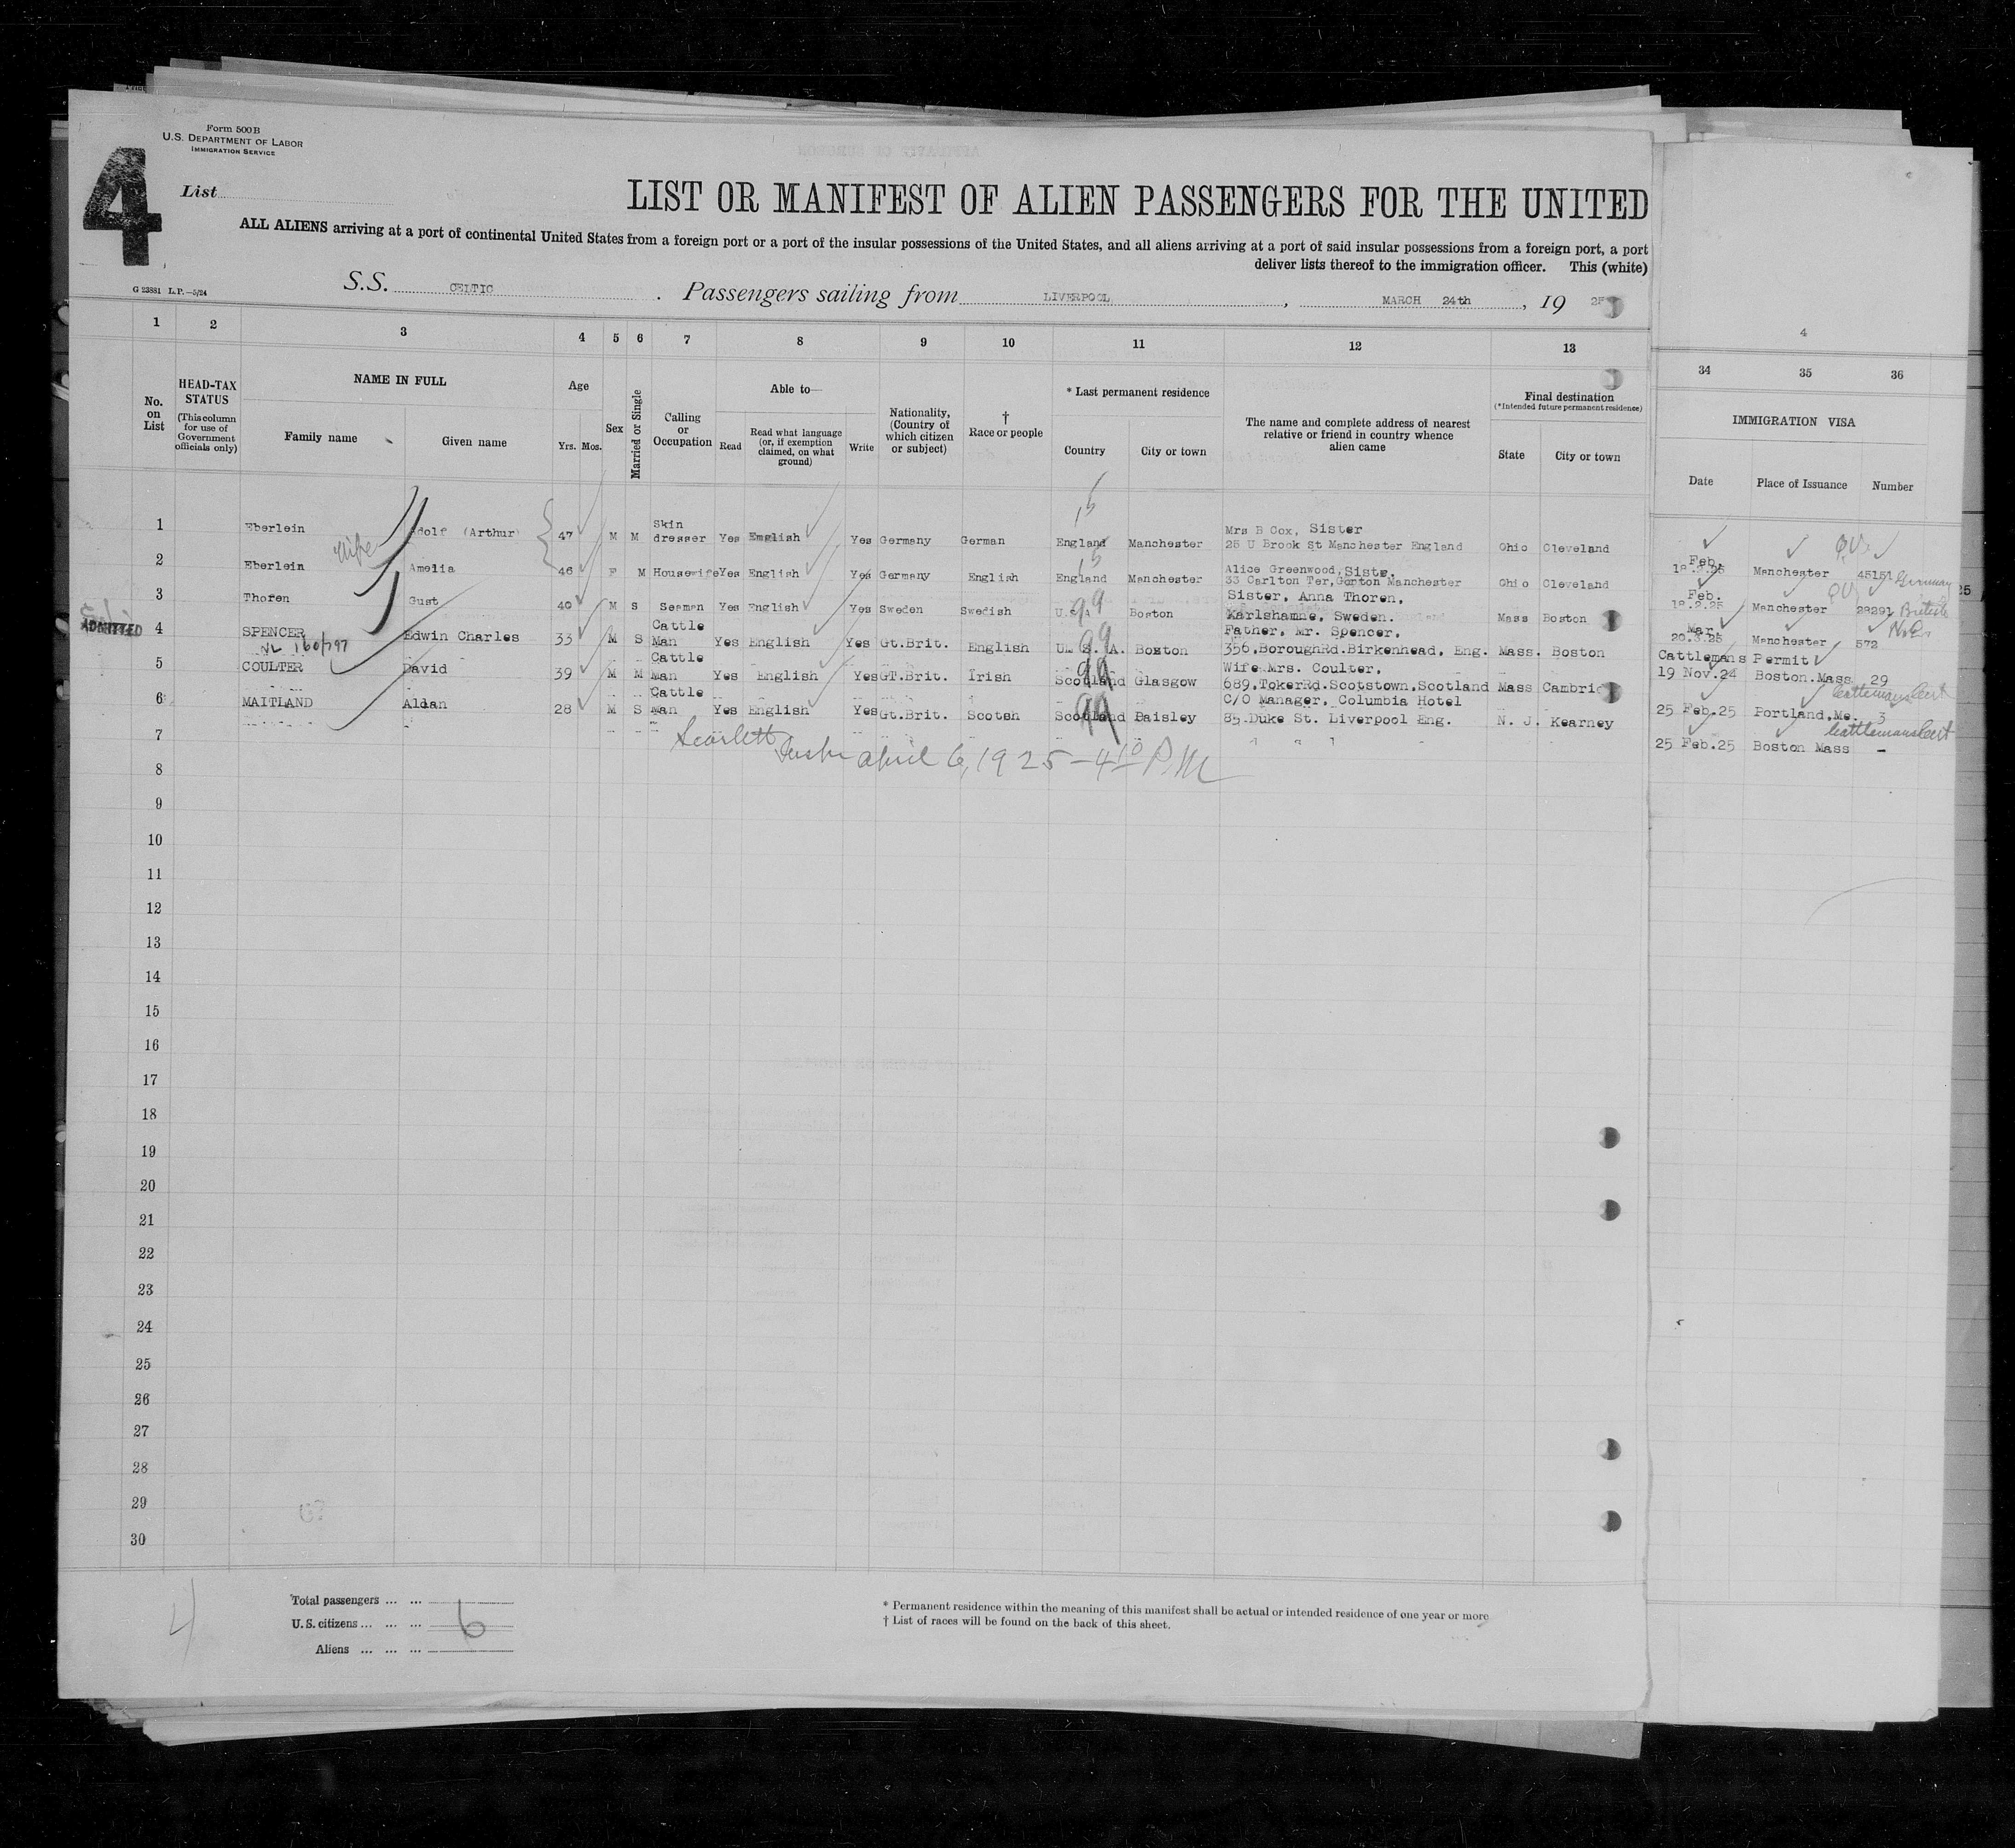 4
Form 500 B
U.S. DEPARTMENT OF LABOR
IMMIGRATION SERVICE
List
LIST OR MANIFEST OF ALIEN PASSENGERS FOR THE UNITED
ALL ALIENS arriving at a port of continental United States from a foreign port or a port of the insular possessions of the United States, and all aliens arriving at a port of said insular possessions from a foreign port, a port
deliver lists thereof to the immigration officer. This (white)
G 23881 L.P.—5/24
S.S. CELTIC . Passengers sailing from LIVERPOOL , MARCH 24th , 19 25
1 2 3 4 5 6 7 8 9 10 11 12 13
4
34 35 36
No. on List
HEAD-TAX STATUS (This column for use of Government officials only)
NAME IN FULL
Family name Given name
Age
Yrs. Mos.
Sex
Married or Single
Calling or Occupation
Able to—
Read
Read what language (or, if exemption claimed, on what ground)
Write
Nationality, (Country of which citizen or subject)
† Race or people
* Last permanent residence
Country City or town
The name and complete address of nearest relative or friend in country whence alien came
Final destination
(*Intended future permanent residence)
State City or town
IMMIGRATION VISA
Date Place of Issuance Number
15
1 Eberlein Adolf (Arthur) 47 M M Skin dresser Yes English Yes Germany German England Manchester Mrs B Cox, Sister 25 U Brook St Manchester England Ohio Cleveland
wife
15
2 Eberlein Amelia 46 F M Housewife Yes English Yes Germany English England Manchester Alice Greenwood, Siste. 33 Carlton Ter, Gorton Manchester Ohio Cleveland
99
3 Thoren Gust 40 M S Seaman Yes English Yes Sweden Swedish U.S.A Boston Sister, Anna Thoren, Karlshamne, Sweden. Mass Boston
ADMITTED
99
4 SPENCER Edwin Charles 33 M S Cattle Man Yes English Yes Gt.Brit. English U. S. A. Boston Father, Mr. Spencer, 356,BoroughRd.Birkenhead, Eng. Mass. Boston
99
5 COULTER David 39 M M Cattle Man Yes English Yes GT.Brit. Irish Scotland Glasgow Wife Mrs. Coulter, 689,TokerRd.Scotstown.Scotland Mass Cambri
99
6 MAITLAND Aldan 28 M S Cattle Man Yes English Yes Gt.Brit. Scotch Scotland Paisley C/O Manager, Columbia Hotel 85.Duke St. Liverpool Eng. N. J. Kearney
Feb. 18.2.25 Manchester 45151 Germany
Feb. 18.2.25 Manchester 28291 British
Mar. 20.3.25 Manchester 572
Cattlemans Permit
19 Nov.24 Boston.Mass 29
Cattlemans Cert
25 Feb.25 Portland.Me. 3
Cattlemans Cert
25 Feb.25 Boston Mass –
7
Scarlett April 6, 1925 – 4 10 P.M
8
9
10
11
12
13
14
15
16
17
18
19
20
21
22
23
24
25
26
27
28
29
30
4
Total passengers ... ...
U.S. citizens ... ... ... 6
Aliens ... ... ...
* Permanent residence within the meaning of this manifest shall be actual or intended residence of one year or more
† List of races will be found on the back of this sheet.